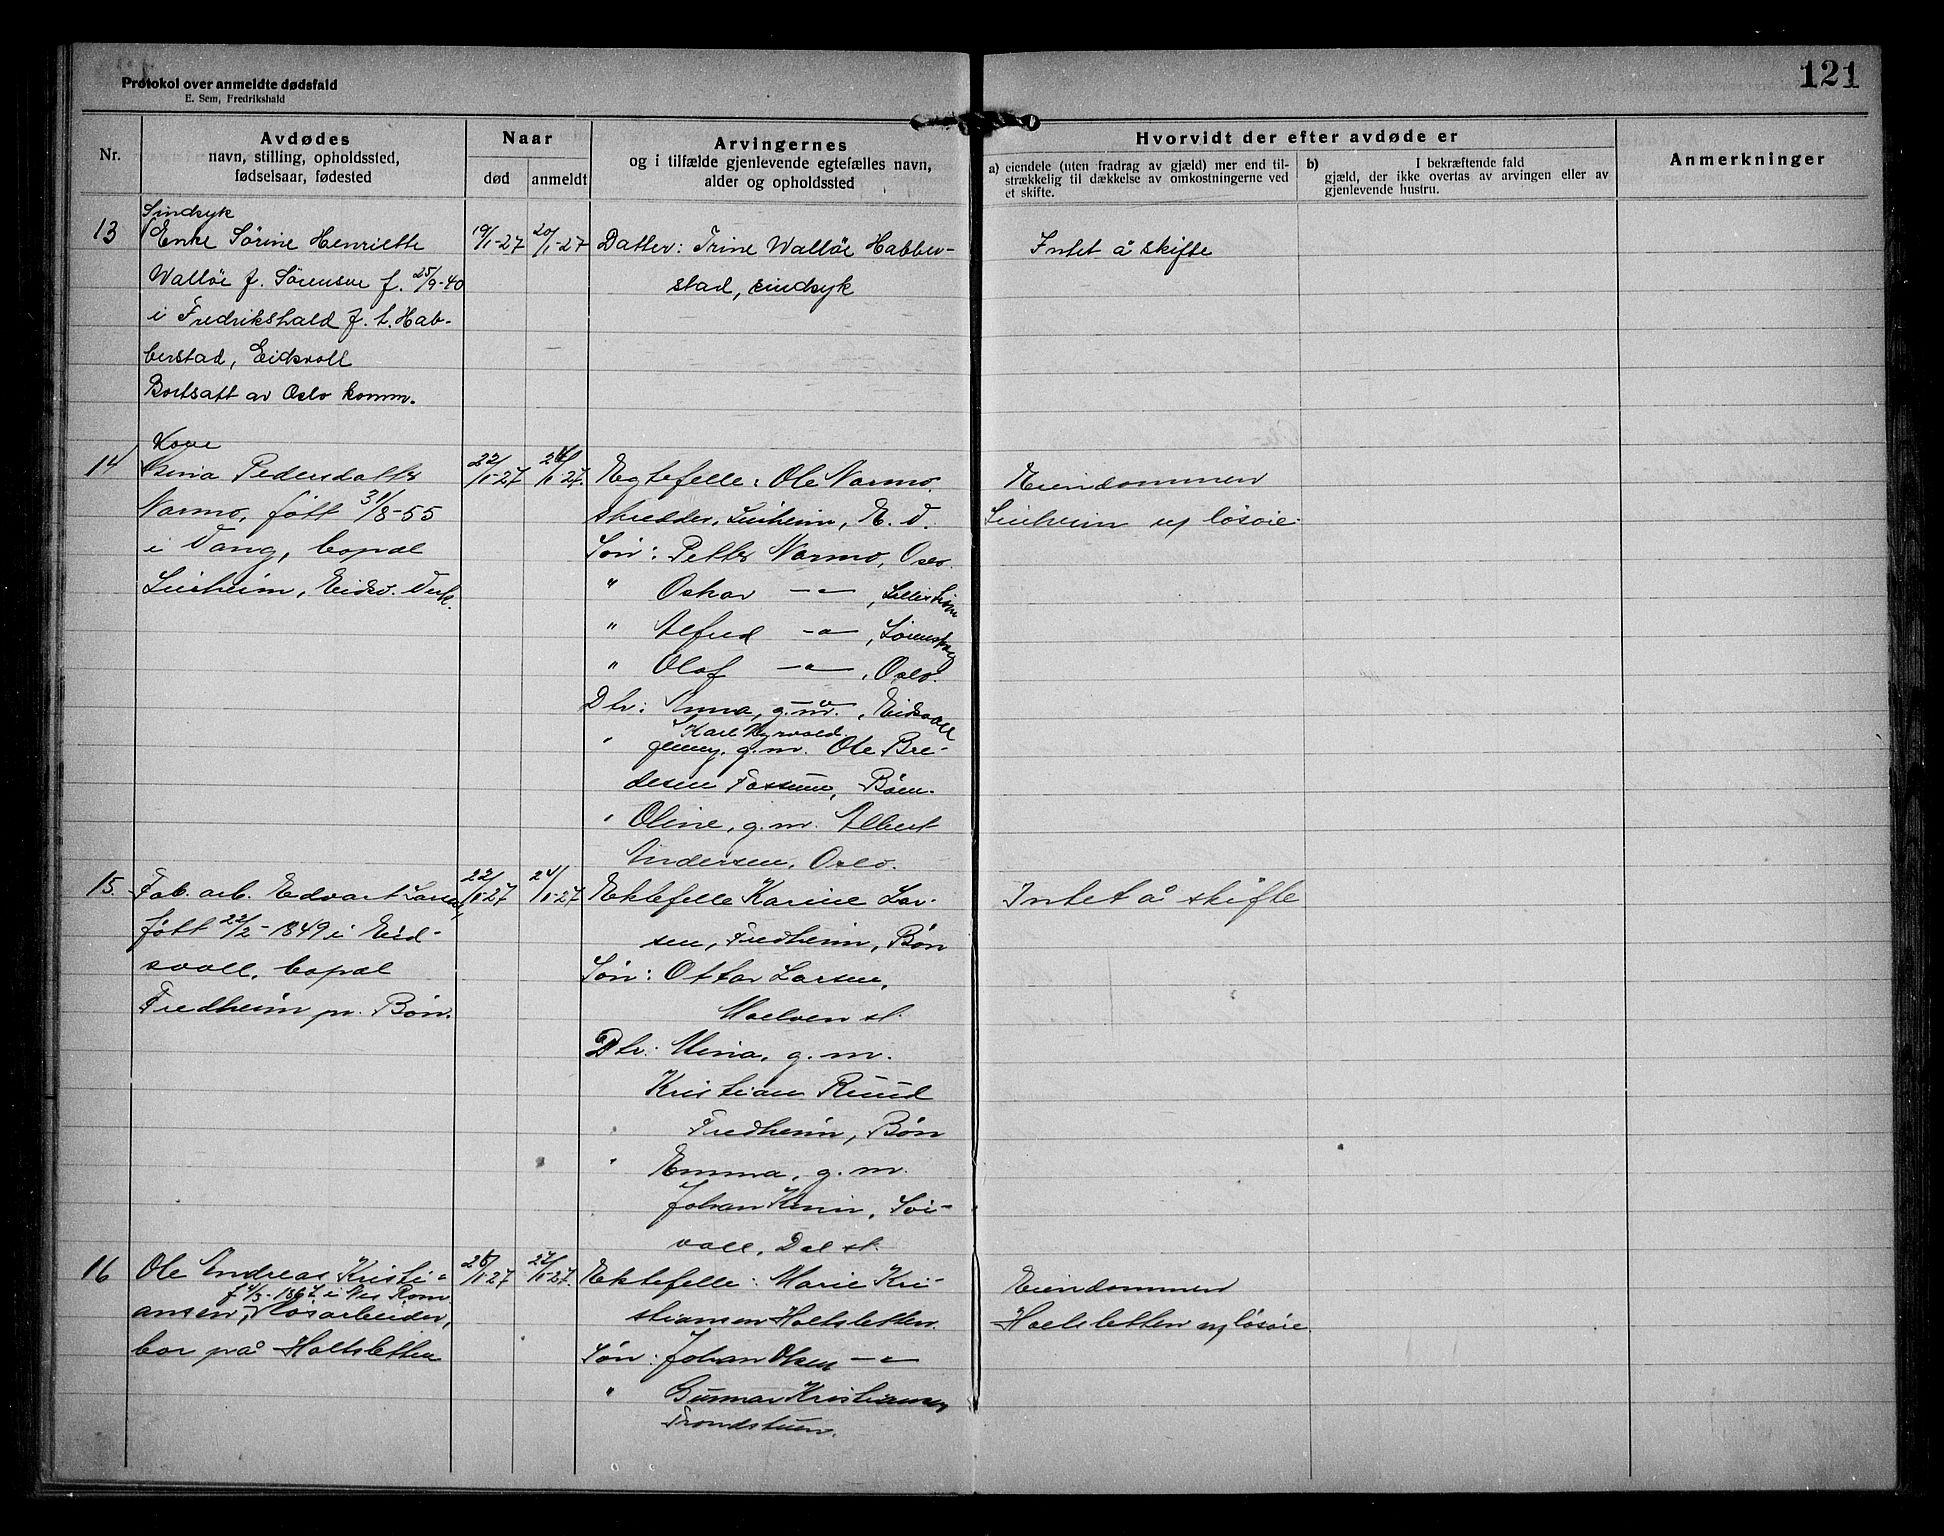 121
Protokol over anmeldte dødsfald
E. Sem, Fredrikshald
Nr.
Avdødes
navn, stilling, opholdssted,
fødselsaar, fødested
Naar
død
anmeldt
Arvingernes
og i tilfælde gjenlevende egtefælles navn,
alder og opholdssted
Hvorvidt der efter avdøde er
a) eiendele (uten fradrag av gjæld) mer end til-
strækkelig til dækkelse av omkostningerne ved
et skifte.
b) I bekræftende fald
gjæld, der ikke overtas av arvingen eller av
gjenlevende hustru.
Anmerkninger
13
Sindsyk
Enke Sørine Henriette
Walløe f. Sørensen f. 25/9-40
i Fredrikshald f. t. Hab-
berstad, Eidsvoll
Bortsatt av Oslo komm.
19/1-27
20/1-27
Datter: Trine Walløe Habber-
stad, sindsyk
Intet å skifte
14
Kone
Pedersdatter
Narmo, født 31/8-55
i Vang, bopæl
Eidsv. Verk.
22/1-27
Egtefelle: Ole Narmo,
skredder, E. V.
Søn: Petter Narmo, Oslo.
" Oskar -"- , Lillestrøm
" Alfred -"- ,
" Olaf -"- , Oslo.
Dtr: Anna, g.m. , Eidsvoll
Karl Myrvold.
" Jenny, g.m. Ole Bre-
desen Fossum, Bøn.
" Oline, g.m. Albert
Andersen, Oslo.
Eiendommen
og løsøie.
15.
Fab. arb. Edvart Larsen,
født 22/2-1849 i Eid-
svoll, bopæl
Fredheim pr. Bøn.
22/1-27
24/1-27
Ektefelle Karine Lar-
sen, Fredheim, Bøn
Søn: Ottar Larsen,
Moelven st.
Dtr: Mina, g.m.
Kristian Ruud
Fredheim, Bøn
" Emma, g.m.
Johan
voll, Dal st.
Intet å skifte
16
Ole Andreas Kristi-
f 4/3-1867 i Nes Rom
ansen, løsarbeider,
bor på Holtsletten
27/1-27.
Ektefelle: Marie Kri-
stiansen Holtsletten.
Søn: Johan Olsen -"-
" Gunnar Kristiansen
Trondstuen.
Eiendommen
Holtsletten og løsøie.